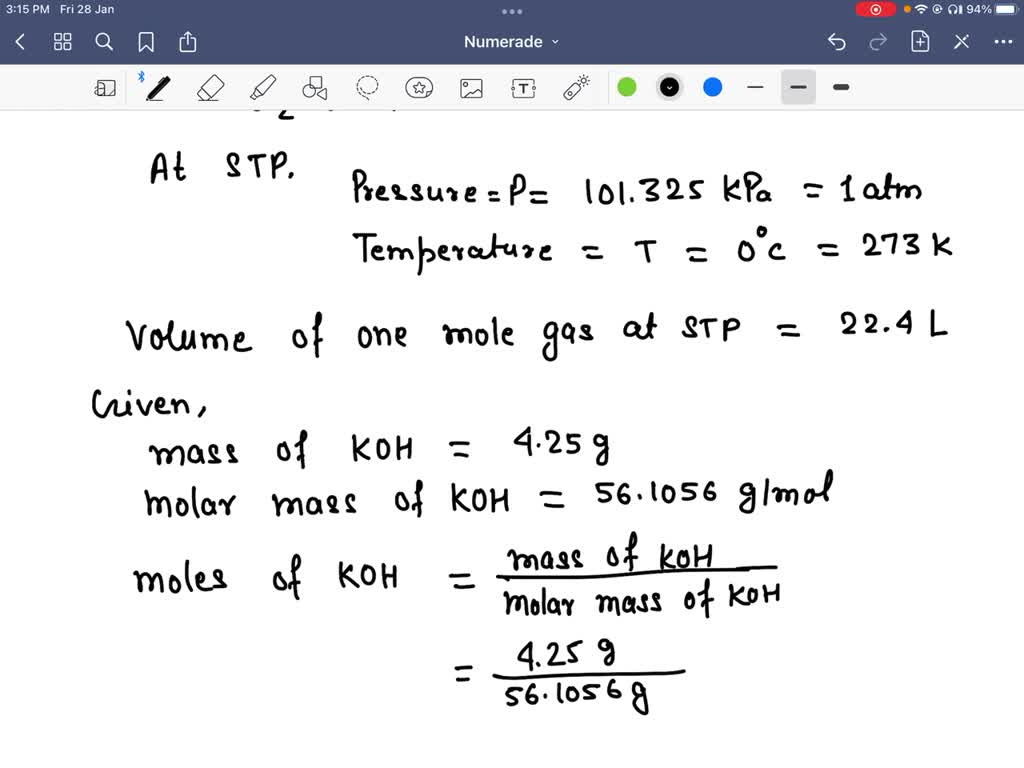 3:15 PM Fri 28 Jan
94%
Numerade
T
At STP.
Pressure = P = 101.325 KPa = 1 atm
Temperature = T = 0°C = 273 K
Volume of one mole gas at STP = 22.4 L
Given,
mass of KOH = 4.25 g
Molar mass of KOH = 56.1056 g/mol
moles of KOH = mass of KOH
Molar mass of KOH
= 4.25 g
56.1056 g